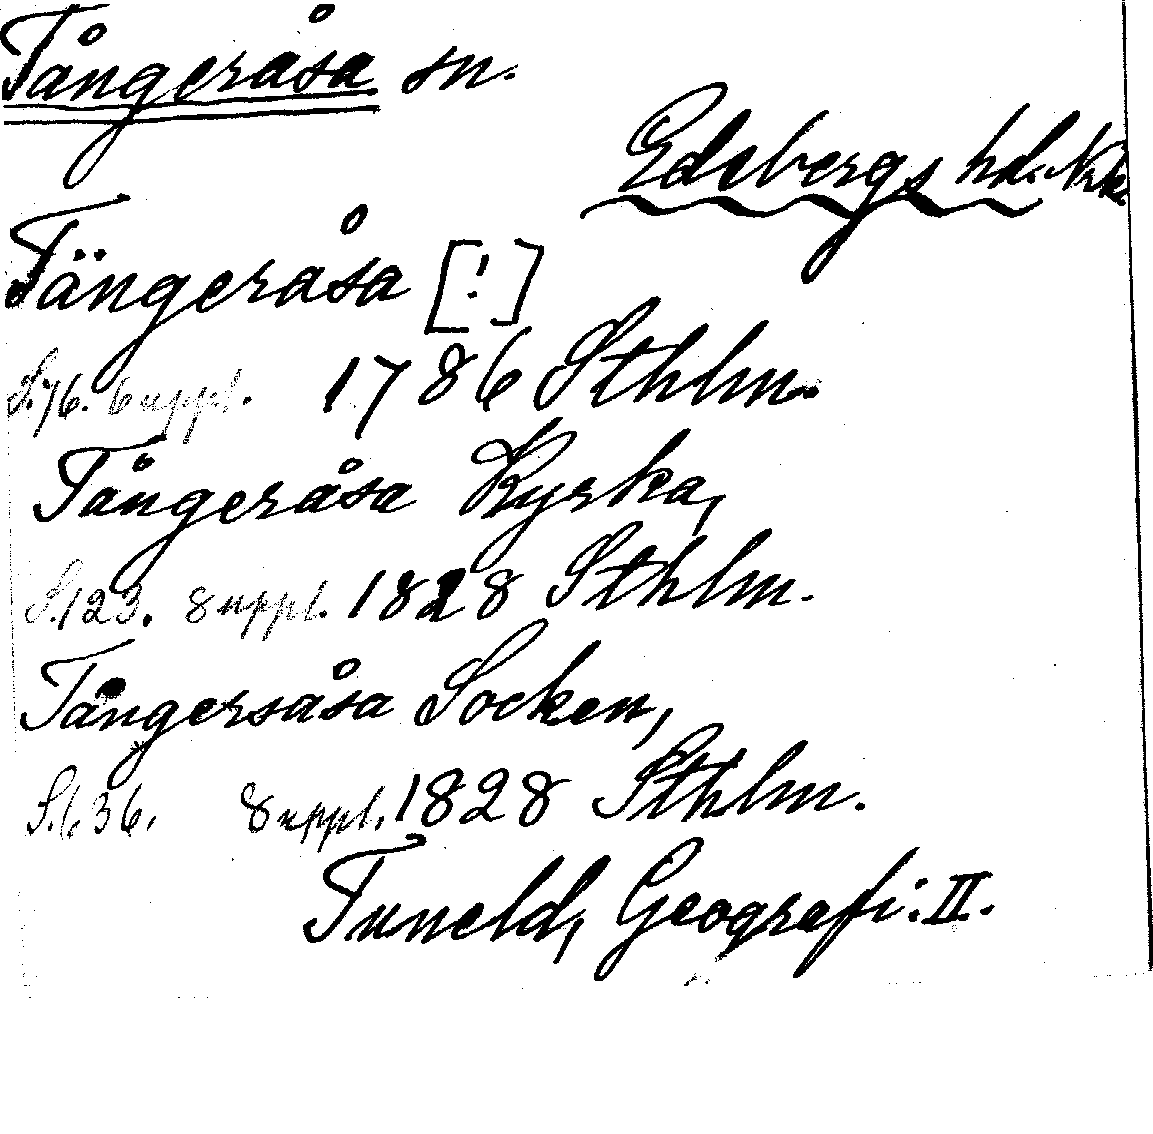 Tångeråsa sn.
Edsbergs hd. Nrk
Tängeråsa [!]
S. 76. 6 uppl. 1786 Sthlm.
Tångeråsa Kyrka,
S. 123. 8 uppl. 1828 Sthlm.
Tångersåsa Socken,
S. 136. 8 uppl. 1828 Sthlm.
Tuneld, Geografi: II.